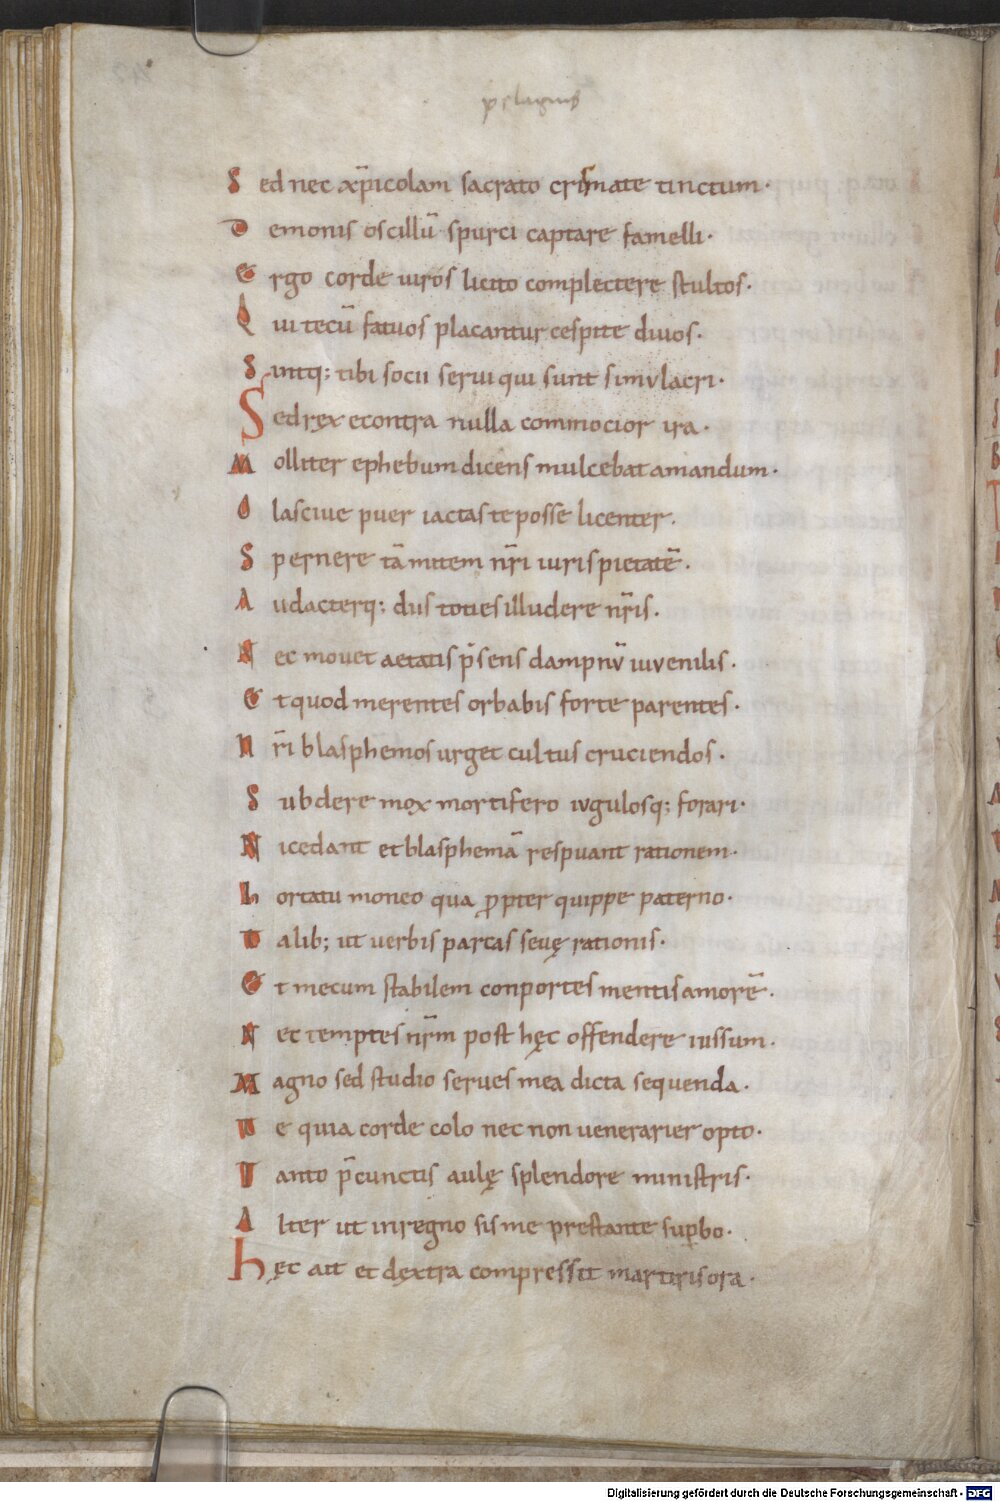 pelagius
Sed nec xp̄icolam sacrato crismate tinctum·
Demonis oscillū spurci captare famelli·
Ergo corde uiros licito complectere stultos·
Qui tecū fatuos placantur cespite diuos·
Sintq; tibi socii serui qui sunt simvlacri·
Sed rex econtra nulla commocior ira·
Molliter ephebum dicens mulcebat amandum·
O lasciue puer iactas te posse licenter·
Spernere tā mitem nr̄i iuris pietatē·
Audacterq; dus toties illudere nr̄is·
Nec mouet aetatis p̄sens dampnv̄ iuvenilis·
Et quod merentes orbabis forte parentes·
Nr̄i blasphemos urget cultus cruciendos·
Subdere mox mortifero ivgulosq; forari·
Ni cedant et blasphemā respuant rationem·
Hortatu moneo qua ꝓpter quippe paterno·
Talib; ut uerbis parcas seuę rationis·
Et mecum stabilem conportes mentis amorē·
Net temptes nr̄m post hęc offendere iussum·
Magno sed studio serues mea dicta sequenda·
Te quia corde colo nec non uenerarier opto·
Tanto p̄ cunctis aulę splendore ministris·
Alter ut in regno sis me prestante suꝑbo·
Hęc ait et dextra compressit martiris ora·
Digitalisierung gefördert durch die Deutsche Forschungsgemeinschaft - DFG